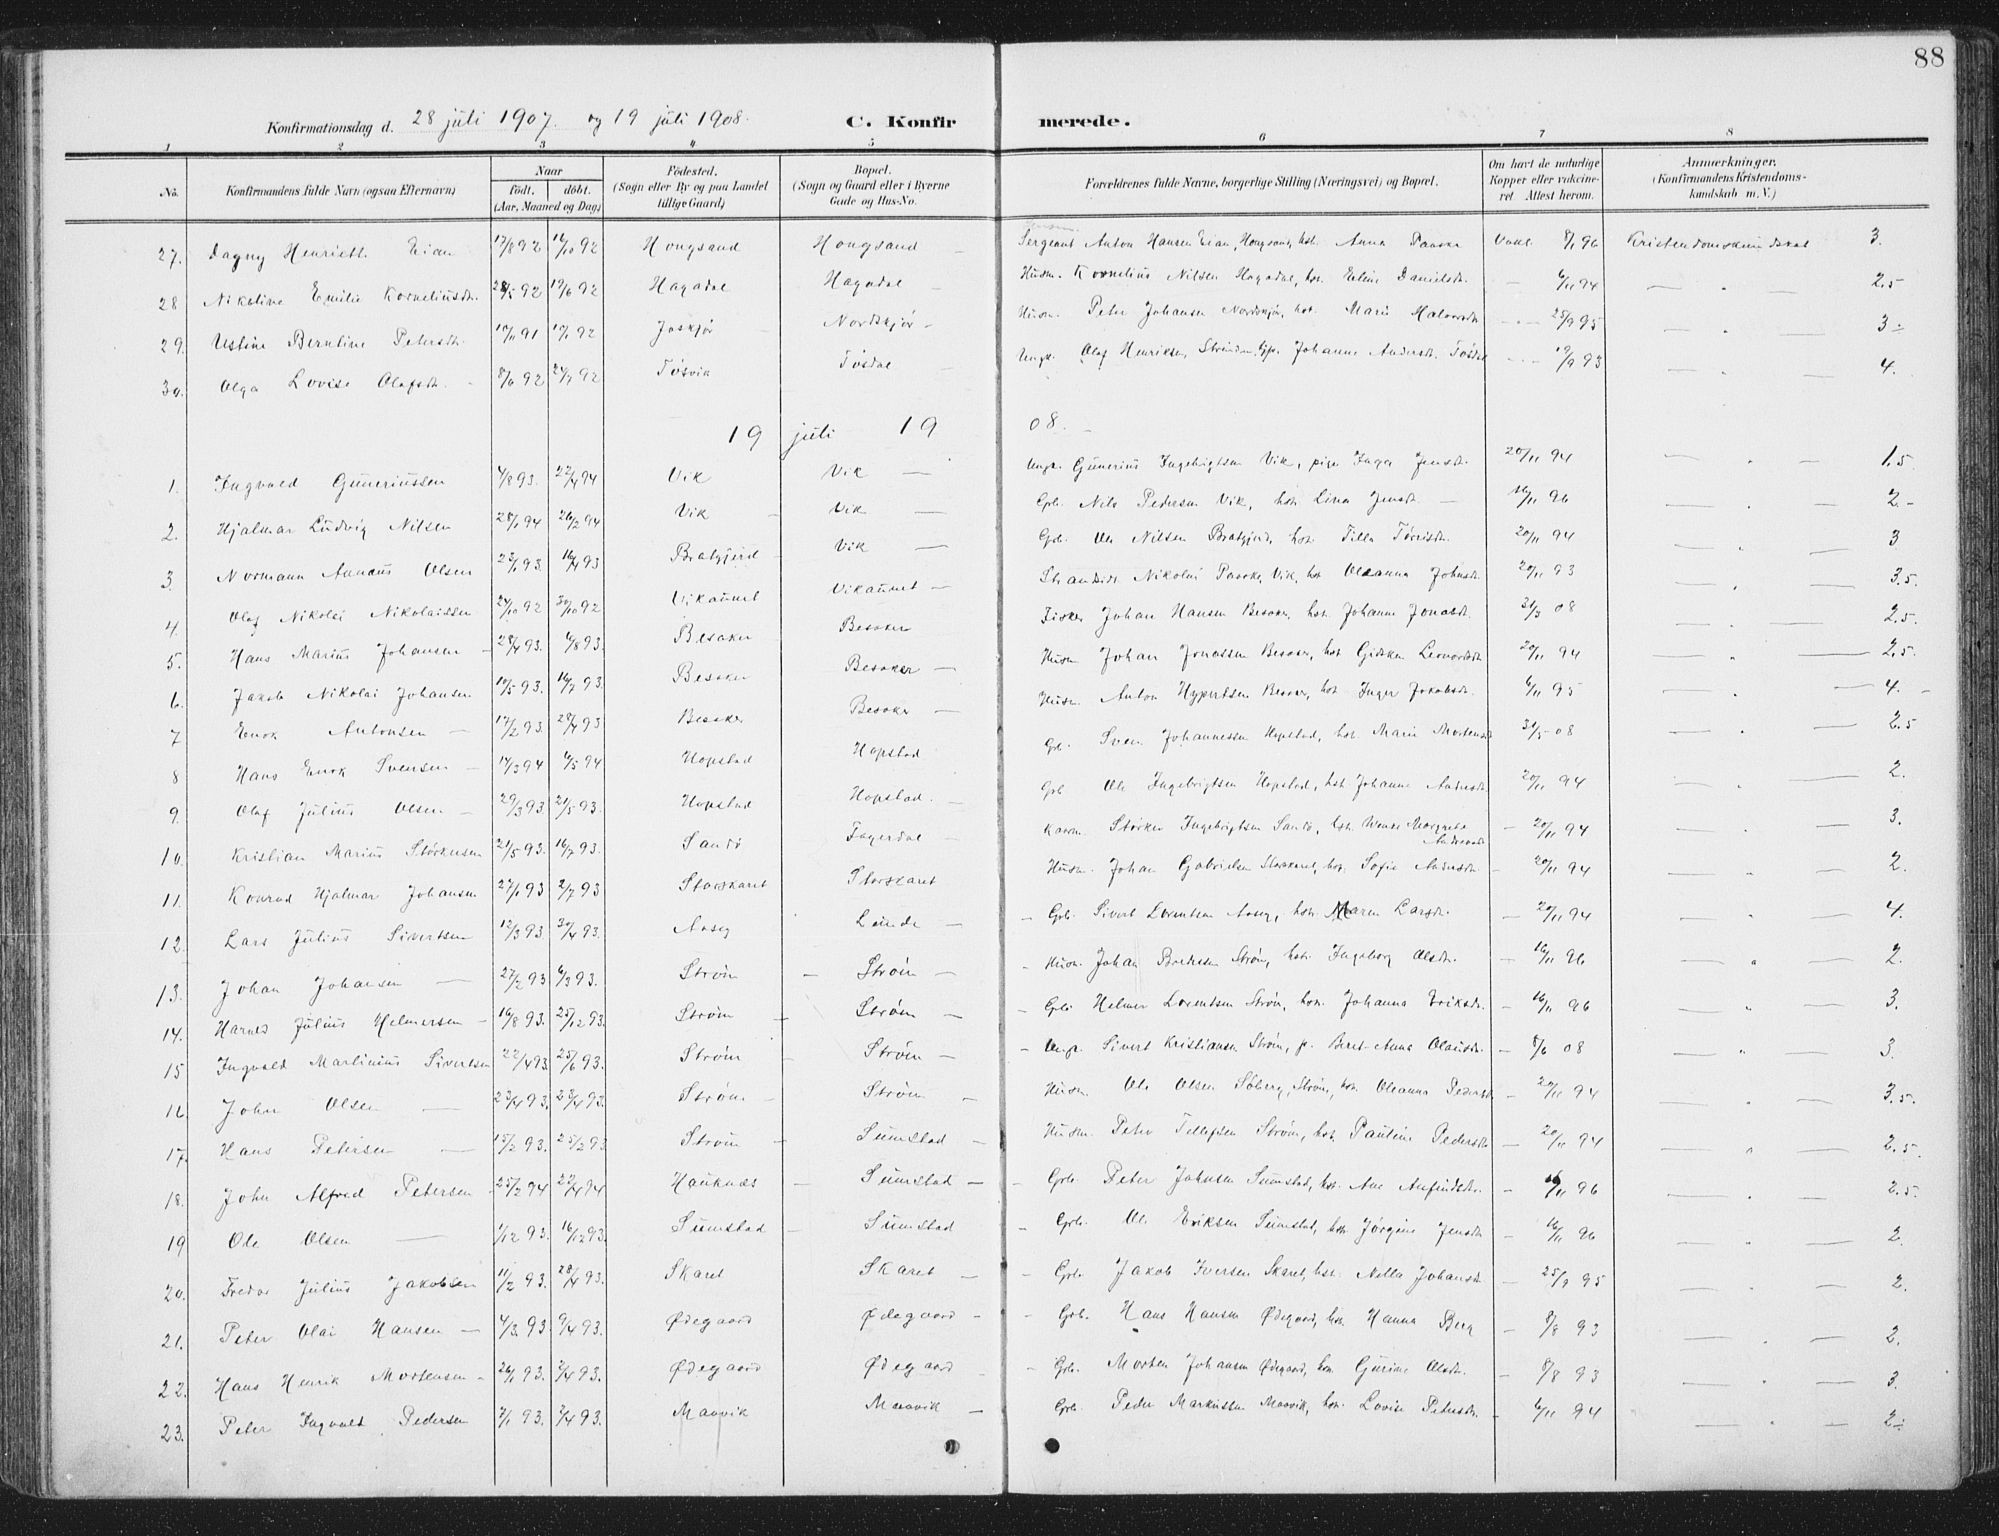 88
Konfirmationsdag d. 28 juli 1907. og 19 juli 1908. C. Konfirmerede.
1 2 3 4 5 6 7 8
No. Konfirmandens fulde Navn (ogsaa Efternavn) Naar födt. döbt. (Aar, Maaned og Dag) Födested. (Sogn eller By og paa Landet tillige Gaard) Bopæl. (Sogn og Gaard eller i Byerne Gade og Hus-No. Forældrenes fulde Navne, borgerlige Stilling (Næringsvei) og Bopæl. Om havt de naturlige Kopper eller vakcineret Attest herom. Anmærkninger. (Konfirmandens Kristendomskundskab m. V.)
27. Dagny Henriette Eian 17/8 92 16/10 92 Hongsand Hongsand — Sergeant Anton Hansen Eian, Hongsand, hst. Anna Paaske Vakc. 8/1 96 Kristendomskundskab 3.
28 Nikoline Emilie Korneliusdt. 28/5 92 19/6 92 Hagadal Hagadal — Husm. Kornelius Nilsen Hagadal, hst. Eline Danielsdt. — 6/11 94 — " — 2,5
29. Ustine Berntine Petersdt. 10/11 91 10/1 92 Joskjør — Nordskjør — Husm. Peter Johansen Nordskjør, hst. Marie 25/9 95 — " — 3
30. Olga Lovise Olafsdt. — 8/6 92 24/7 92 Tøsvik Tøsdal — Ungk. Olaf Henriksen, Johanne Andersdt. Tøsdal 19/9 93 — " — 4.
19 juli 1908.
1. Ingvald Guneriussen 4/8 93. 22/4 94 Vik Vik — Ungk. Gunerius Ingebrigtsen Vik, pige Inger Jensdt. 20/11 94 — " — 1,5
2. Hjalmar Ludvig Nilsen 28/1 94 26/2 94 Vik Vik — Grb. Nils Pedersen Vik, hst. Lina Jensdt. — 16/11 96 — " — 2.-
3. Normann Annæus Olsen 23/1 93. 16/4 93 Bratgjerd Vik — Grb. Ole Nilsen Bratgjerd, hst. Tilla 20/11 94 — " — 3
4. Olaf Nikolai Nikolaissen 24/10 92 30/10 92 Vikaunet Vikaunet — Strandsid. Nikolai Paaske, Vik, hst. Oleanna Johnsdt. 20/11 93 — " — 3.5.
5. Hans Marius Johansen — 28/4 93. 6/8 93. Besaker Besaker Fisker Johan Hansen Besaker, hst. Johanne Jonasdt. 31/3 08 — " — 2.5.
6. Jakob Nikolai Johansen 10/5 93. 16/7 93. Besaker Besaker — Husm Johan Jonassen Besaker, hst. Gidsken Leonardsdt. 20/11 94 — " — 2,5.
7 Enok Antonsen — 17/2 93. 28/4 93 Besaker Besaker — Husm. Anton Hypertsen Besaker, hst. Inger Jakobsdt. 6/11 95 — " — 4. —
8 Hans Enok Svensen — 14/3 94 6/5 94 Hopstad Hopstad Grb. Sven Johannessen Hopstad, hst. Marie Mortensdt 31/5 08 — " — 2.5
9. Olaf Julius Olsen — 29/3 93. 21/5 93. Hopstad Hopstad. — Grb Ole Ingebrigtsen Hopstad, hst. Johanne Andersdt. 20/11 94 — " — 2.
10. Kristian Marius Størkersen 21/5 93. 16/7 93. Sandø Fagerdal — Størker Ingebrigtsen Sandø, hst. Wenche Margrethe Andreasdt — 20/11 94 — " — 3.
11. Konrad Hjalmar Johansen 27/1 93 2/7 93 Storskaret Storskaret Husm. Johan Gabrielsen Storskaret, hst. Sofie Andersdt — 20/11 94 — " — 2.
12. Lars Julius Sivertsen 12/3 93. 30/4 93. Aaseg Lunde — — Grb. Sivert Lorentsen Aaseg, hst. Maren Larsdt. — 20/11 94 — " — 4.
13. Johan Johansen — 27/2 93 6/3 93. Strøm — Strøm — — Husm. Johan Strøm, hst. Ingeborg Olsdt. — 16/11 96 — " — 2.
14. Harnes Julius Helmersen — 16/8 93. 25/12 93. Strøm — Strøm — — Grb. Helmer Lorentsen Strøm, hst. Johanna Eriksdt. — 16/11 96 — " — 3.
15 Ingvald Martinius Sivertsen 22/4 93. 25/6 93. Strøm — Strøm — — Ungk. Sivert Kristiansen Strøm, p. Beret Anna Olausdt. — 8/6 08 — " — 3.
16 John Olsen — 23/4 93. 23/4 93. Strøm — Strøm — Husm. Ole Olsen Søberg, Strøm, hst. Oleanna Pedersdt. — 20/11 94 — " — 3.5.
17. Hans Petersen — 15/2 93. 25/2 93 Strøm — Sumstad — Husm. Peter Tellefsen Strøm, hst. Pauline Pedersdt — 20/11 94 — " — 2.5.
18. John Alfred Petersen 25/2 94 22/4 94 Hauknæs — Sumstad — — Grb. Peter Johnsen Sumstad, hst. Ane Anfindsdt. — 16/11 96 — " — 2.5.
19 Ole Olsen — 1/12 93. 16/12 93. Sumstad — Sumstad — Grb. Ole Eriksen Sumstad, hst. Jørgine Jensdt — 16/11 96 — " — 2.
20. Fredor Julius Jakobsen 11/2 93. 28/4 93. Skaret Skaret — — Grb. Jakob Iversen Skaret, hst. Nella Johansdt. — 25/9 95 — " — 2.
21. Peter Olai Hansen — 4/3 93. 9/4 93. Ødegaard Ødegaard — — Grb. Hans Hansen Ødegaard, hst. Hanna Berg — 8/8 93 — " — 2.
22. Hans Henrik Mortensen — 26/1 93. 2/4 93. Ødegaard Ødegaard — — Grb. Morten Johansen Ødegaard, hst. Gurine Olsdt. — 8/8 93 — " — 3.
23. Peter Ingvald Pedersen 7/1 93. 3/4 93. Maavik Maavik — Grb. Peder Markussen Maavik, hst. Lovise Petersdt. — 6/11 94 — " — 2